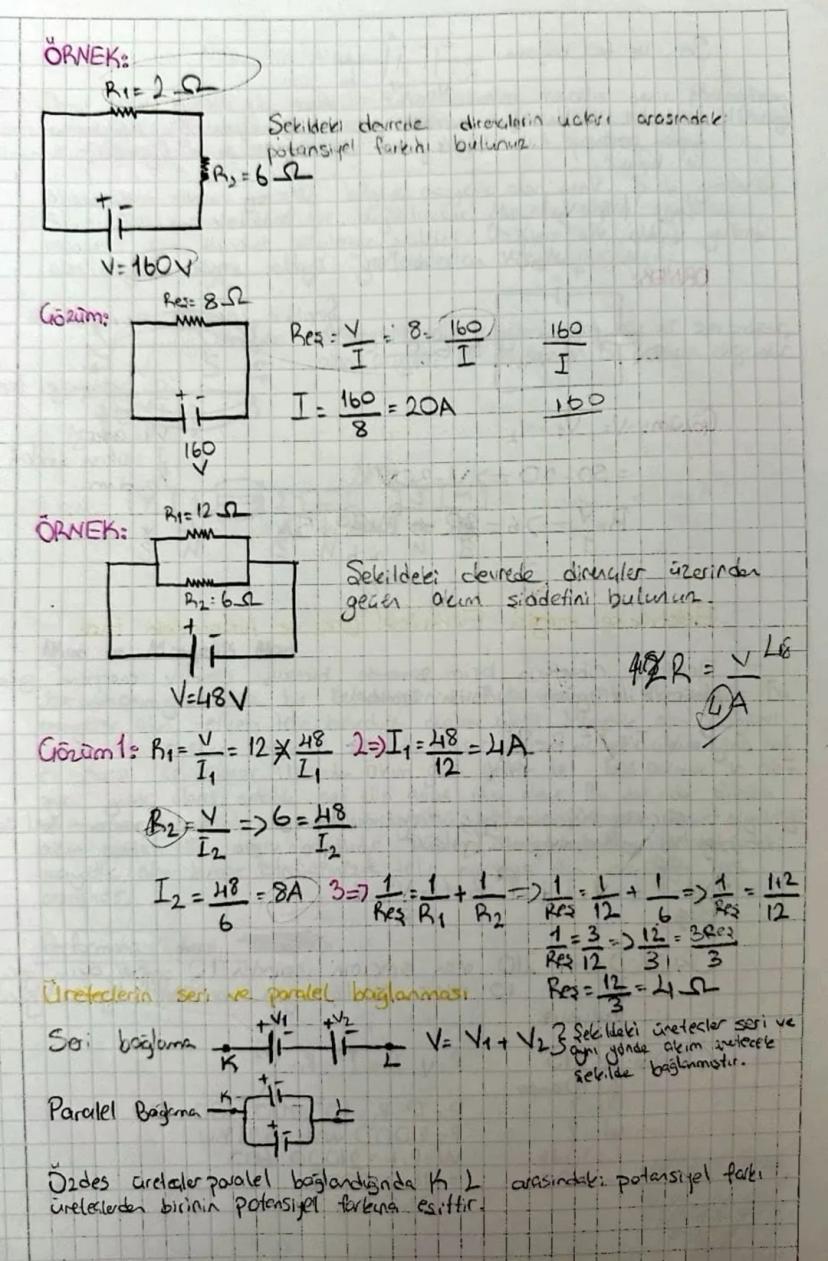 ÖRNEK:
R₁= 2 Ω
Şekildeki devrede dirençlerin uçları arasındaki
potansiyel farkını bulunuz
R₂ = 6 Ω
+ -
V= 160V
Çözüm:
Reş= 8 Ω
Reş = V/I = 8 = 160/I 160/I
I = 160/8 = 20A 160
+ -
160
V
ÖRNEK:
R₁=12 Ω
R₂=6 Ω
Şekildeki devrede dirençler üzerinden
geçen akım şiddetini bulunuz.
+ -
V=48V
R = V 48 / 4A
Çözüm 1: R₁ = V/I₁ = 12 x 48/I₁ 2=> I₁ = 48/12 = 4A
R₂ = V/I₂ => 6 = 48/I₂
I₂ = 48/6 = 8A 3=> 1/Reş = 1/R₁ + 1/R₂ => 1/Reş = 1/12 + 1/6 => 1/Reş = 1+2/12
1/Reş = 3/12 => 12/3 = 3Reş/3
Reş = 12/3 = 4 Ω
Üreteçlerin seri ve paralel bağlanması
Seri bağlama K + V₁ - + V₂ - L V = V₁ + V₂ } Şekildeki üreteçler seri ve
aynı yönde akım üretecek
şekilde bağlanmıştır.
Paralel Bağlama K + - + - L
Özdeş üreteçler paralel bağlandığında K L arasındaki potansiyel farkı
üreteçlerden birinin potansiyel farkına eşittir.